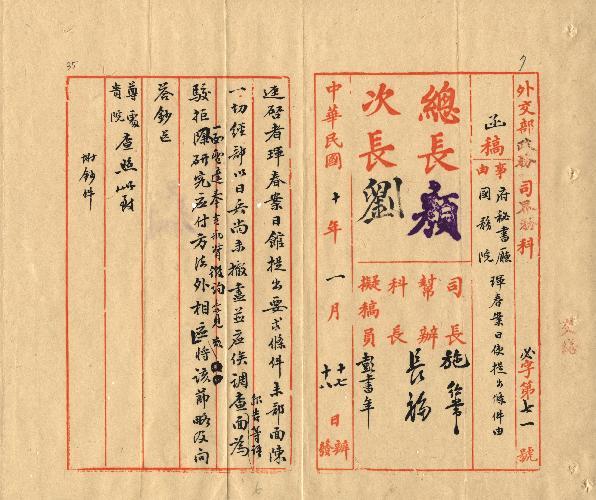 外交部政務司界務科
必字第七一號
函稿
事由
府秘書廳
國務院
琿春案日使提出條件由
總長顏
次長劉
司長施紹常
幫辦長福
科長
擬稿員彭書年
中華民國十年一月十七日辦
十八發
逕啓者琿春案日館提出要求條件來部面陳
一切經部以日兵尚未撤盡並應俟調查面為
報告等詳
駁拒研究應付方法外相應將該節略及問
答鈔送
尊處查照此致
貴院
附鈔件
35
7